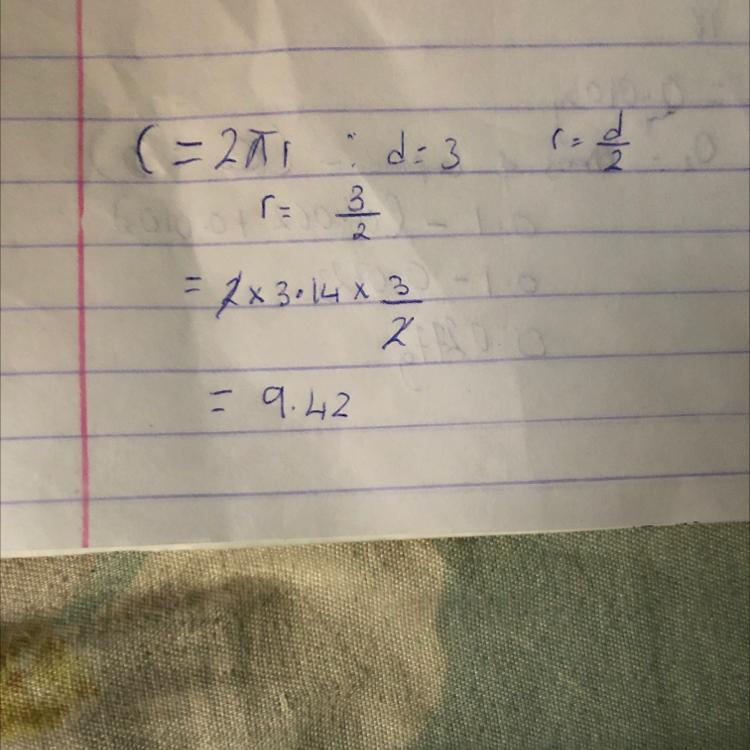 C = 2πr ∵ d = 3 r = d/2
r = 3/2
= 2 × 3.14 × 3/2
= 9.42